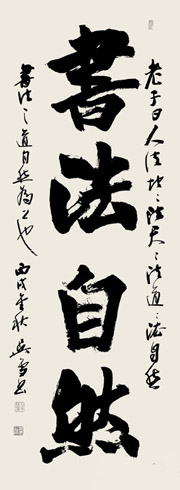 書法自然
老子曰人法地〻法天〻法道〻法自然
書法之道自然為上也
丙戌金秋